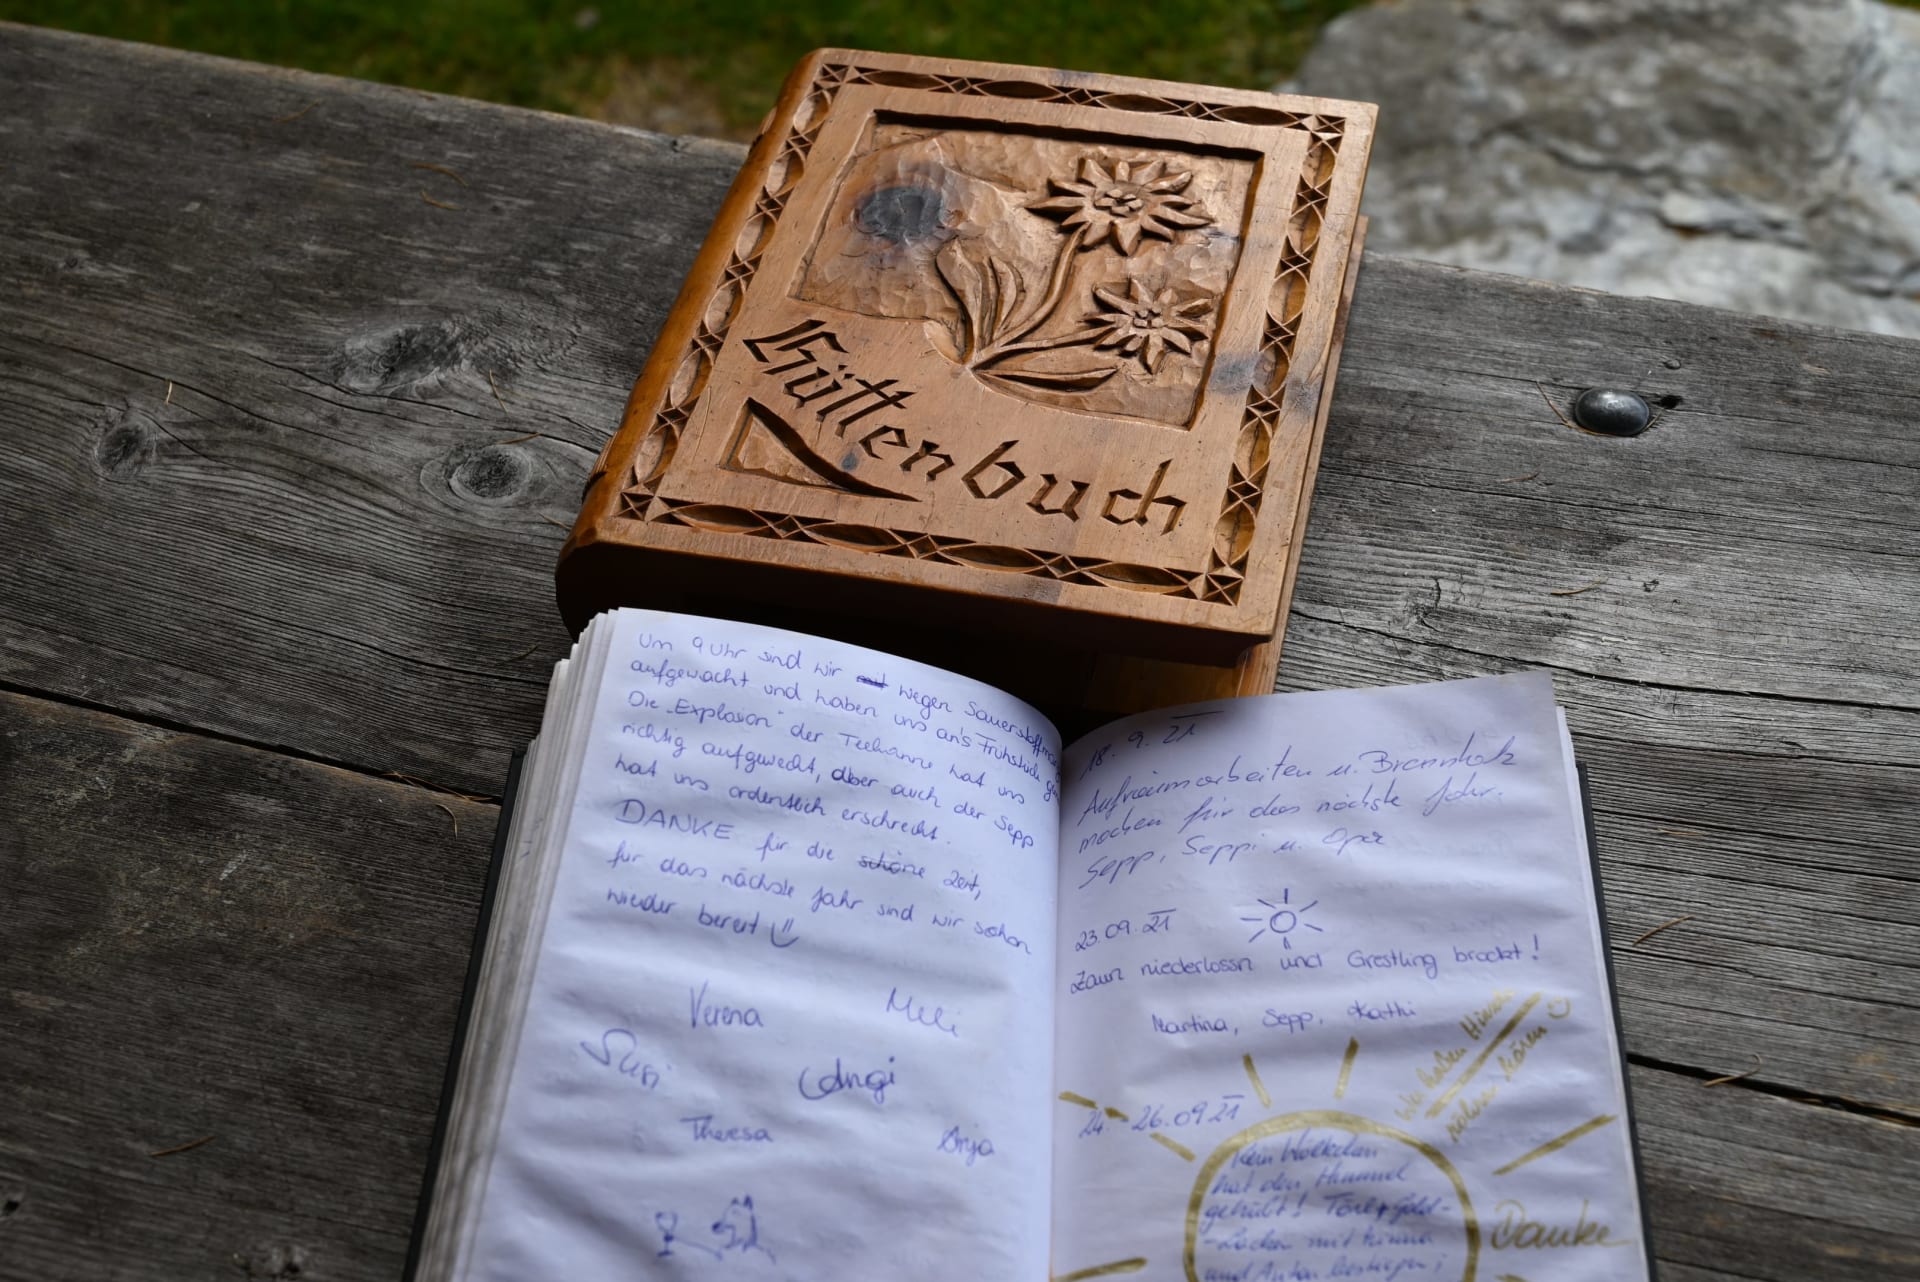 Hüttenbuch
Um 9 Uhr sind wir wegen
aufgewacht und haben uns an's Frühstück
Die „Explosion" der Teekanne hat uns
richtig aufgeweckt, aber auch der Sepp
hat uns ordentlich erschreckt.
DANKE für die schöne Zeit,
für das nächste Jahr sind wir schon
wieder bereit
Verena Meli
Susi Angi
Theresa Anja
18. 9. 21
Aufräumarbeiten u. Brennholz
machen für das nächste Jahr.
Sepp, Seppi u. Opa
23.09.21
Zaun niederlossn und Grestling brockt!
Martina, Sepp, Kathi
24. - 26.09 21
Wir haben
röhren hören
Kein Wölkchen
hat den Himmel
getrübt!
mit
und Anton bestiegen;
Danke